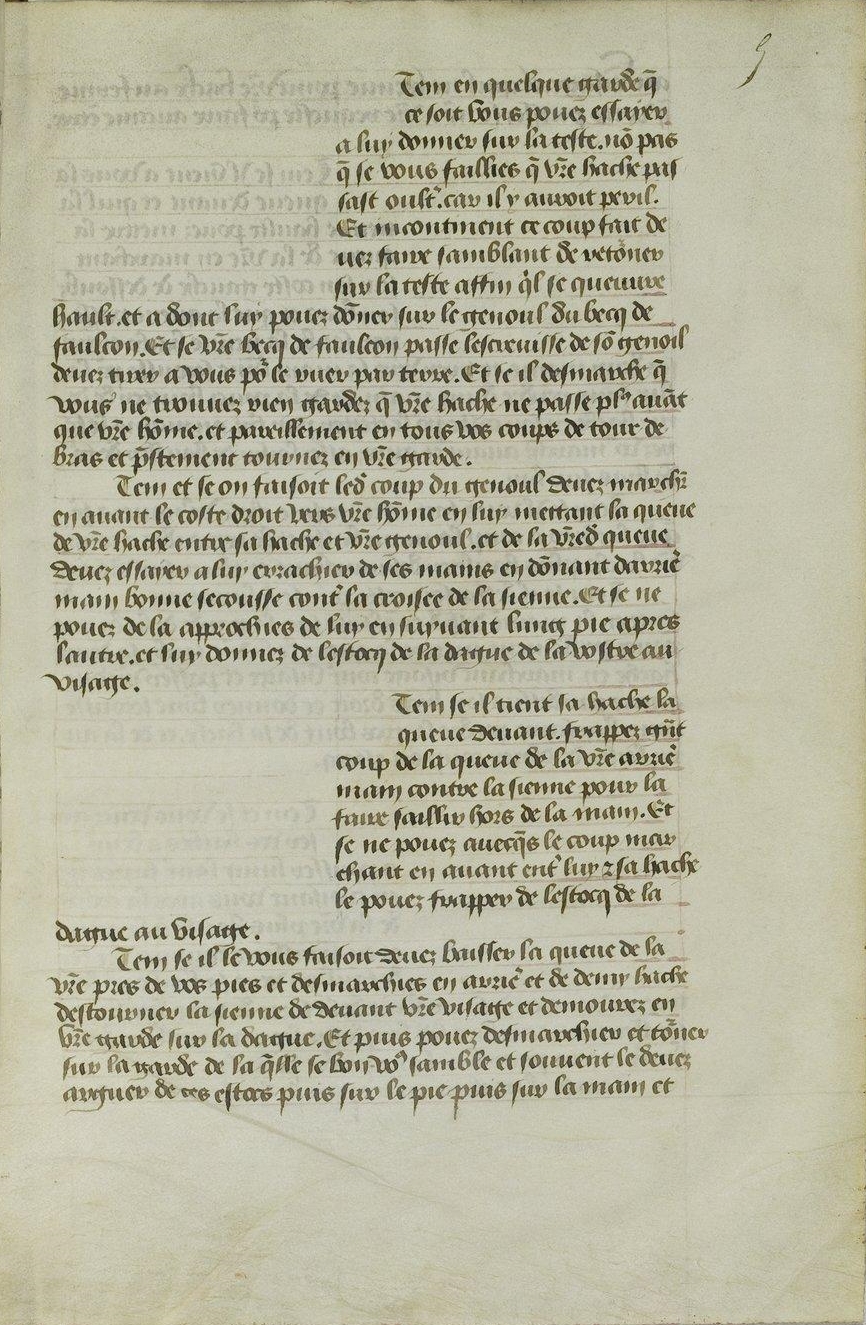 5
Tem en quelque garde q̄
ce soit vous pouez essayer
a luy donner sur la teste. nō pas
q̄ se vous faillies q̄ vr̄e hache pas
sast oult̃. car il y auroit peril.
Et incontinent ce coup fait de
uez faire samblant de retōner
sur la teste affin q̃l se queuure
hault. et a dont luy pouez dōner sur le genoul du becq de
faulcon. Et se vr̄e becq de faulcon passe lescreuisse de sō genoil
deuez tirer a vous po᷑ le ruer par terre. Et se il desmarche q̄
vous ne trouuez rien gardez q̄ vr̄e hache ne passe plꝰ auāt
que vr̄e hōme. et pareillement en tous vos coups de tour de
bras et p̄stement tournez en vr̄e garde.
Tem et se on faisoit led̄ coup du genoul deuez marchr̄
en auant le coste droit vers vr̄e hōme en luy mettant la queue
de vr̄e hache entre sa hache et vr̄e genoul. et de la vr̄ed̄ queue
deuez essayer a luy errachier de ses mains en dōnant darriẽ
main bonne secousse cont̃ la croisee de la sienne. Et se ne
pouez de la approchies de luy en suyuant lung pie apres
lautre. et luy donnez de lestocq de la dague de la vostre au
visage.
Tem se il tient sa hache la
queue deuant. frappez gñt
coup de la queue de la vr̄e arriẽ
main contre la sienne pour la
faire saillir hors de la main. Et
se ne pouez auecq̄s le coup mar
chant en auant ent̃ luy ⁊ sa hache
le pouez frapper de lestocq de la
dague au visage.
Tem se il le vous faisoit deuez baisser la queue de la
vr̄e pres de vos pies et desmarchies en arriẽ et de demy hache
destourner la sienne de deuant vr̄e visage et demourez en
vr̄e garde sur la dague. Et puis pouez desmarchier et tōner
sur la garde de la q̄lle se bon voꝰ samble et souuent le deuez
arguer de ces estocs puis sur le pie puis sur la main et